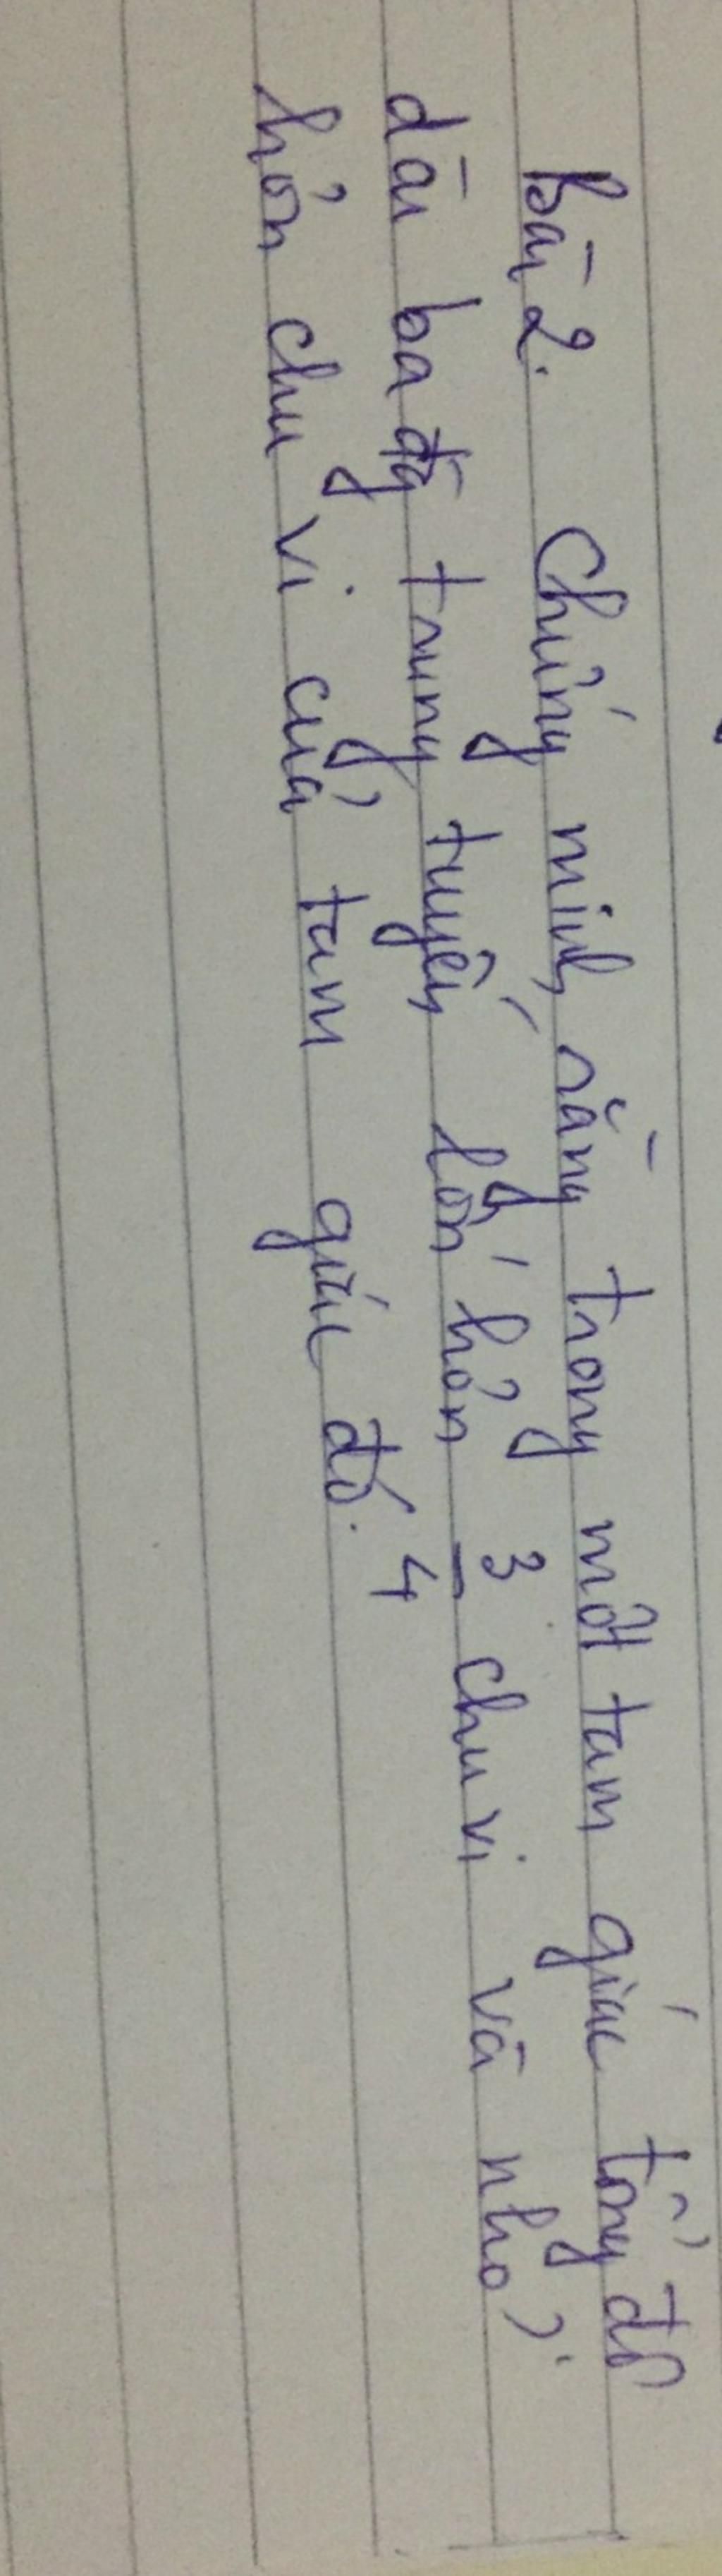 Bài 2. Chứng minh rằng trong một tam giác tổng độ
dài ba đg trung tuyến lớn hơn 3/4 chu vi và nhỏ
hơn chu vi của tam giác đó.